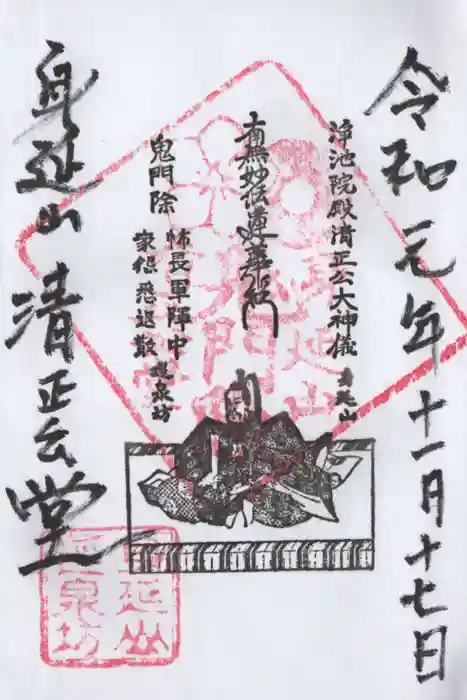 令和元年十一月十七日
浄池院殿清正公大神儀
身延山
南無妙法蓮華経
鬼門除
怖長軍陣中
衆怨悉退散
覚泉坊
身延山 清正公堂
身延山
覚泉坊